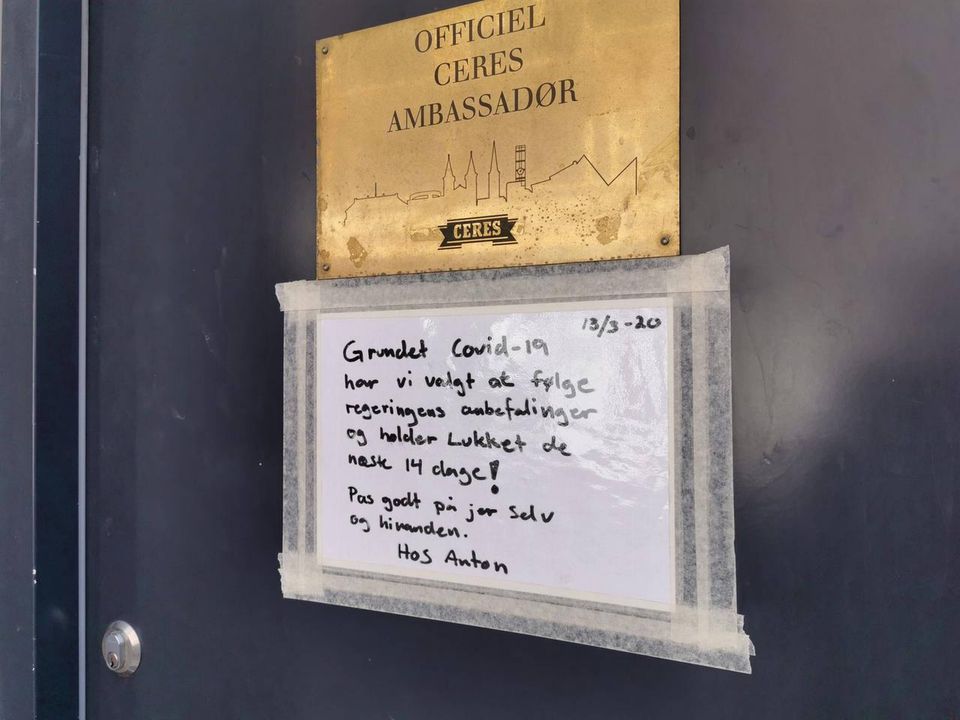 OFFICIEL
CERES
AMBASSADØR
CERES
13/3-20
Grundet Covid-19
har vi valgt at følge
regeringens anbefalinger
og holder Lukket de
næste 14 dage!
Pas godt på jer selv
og hinanden.
Hos Anton